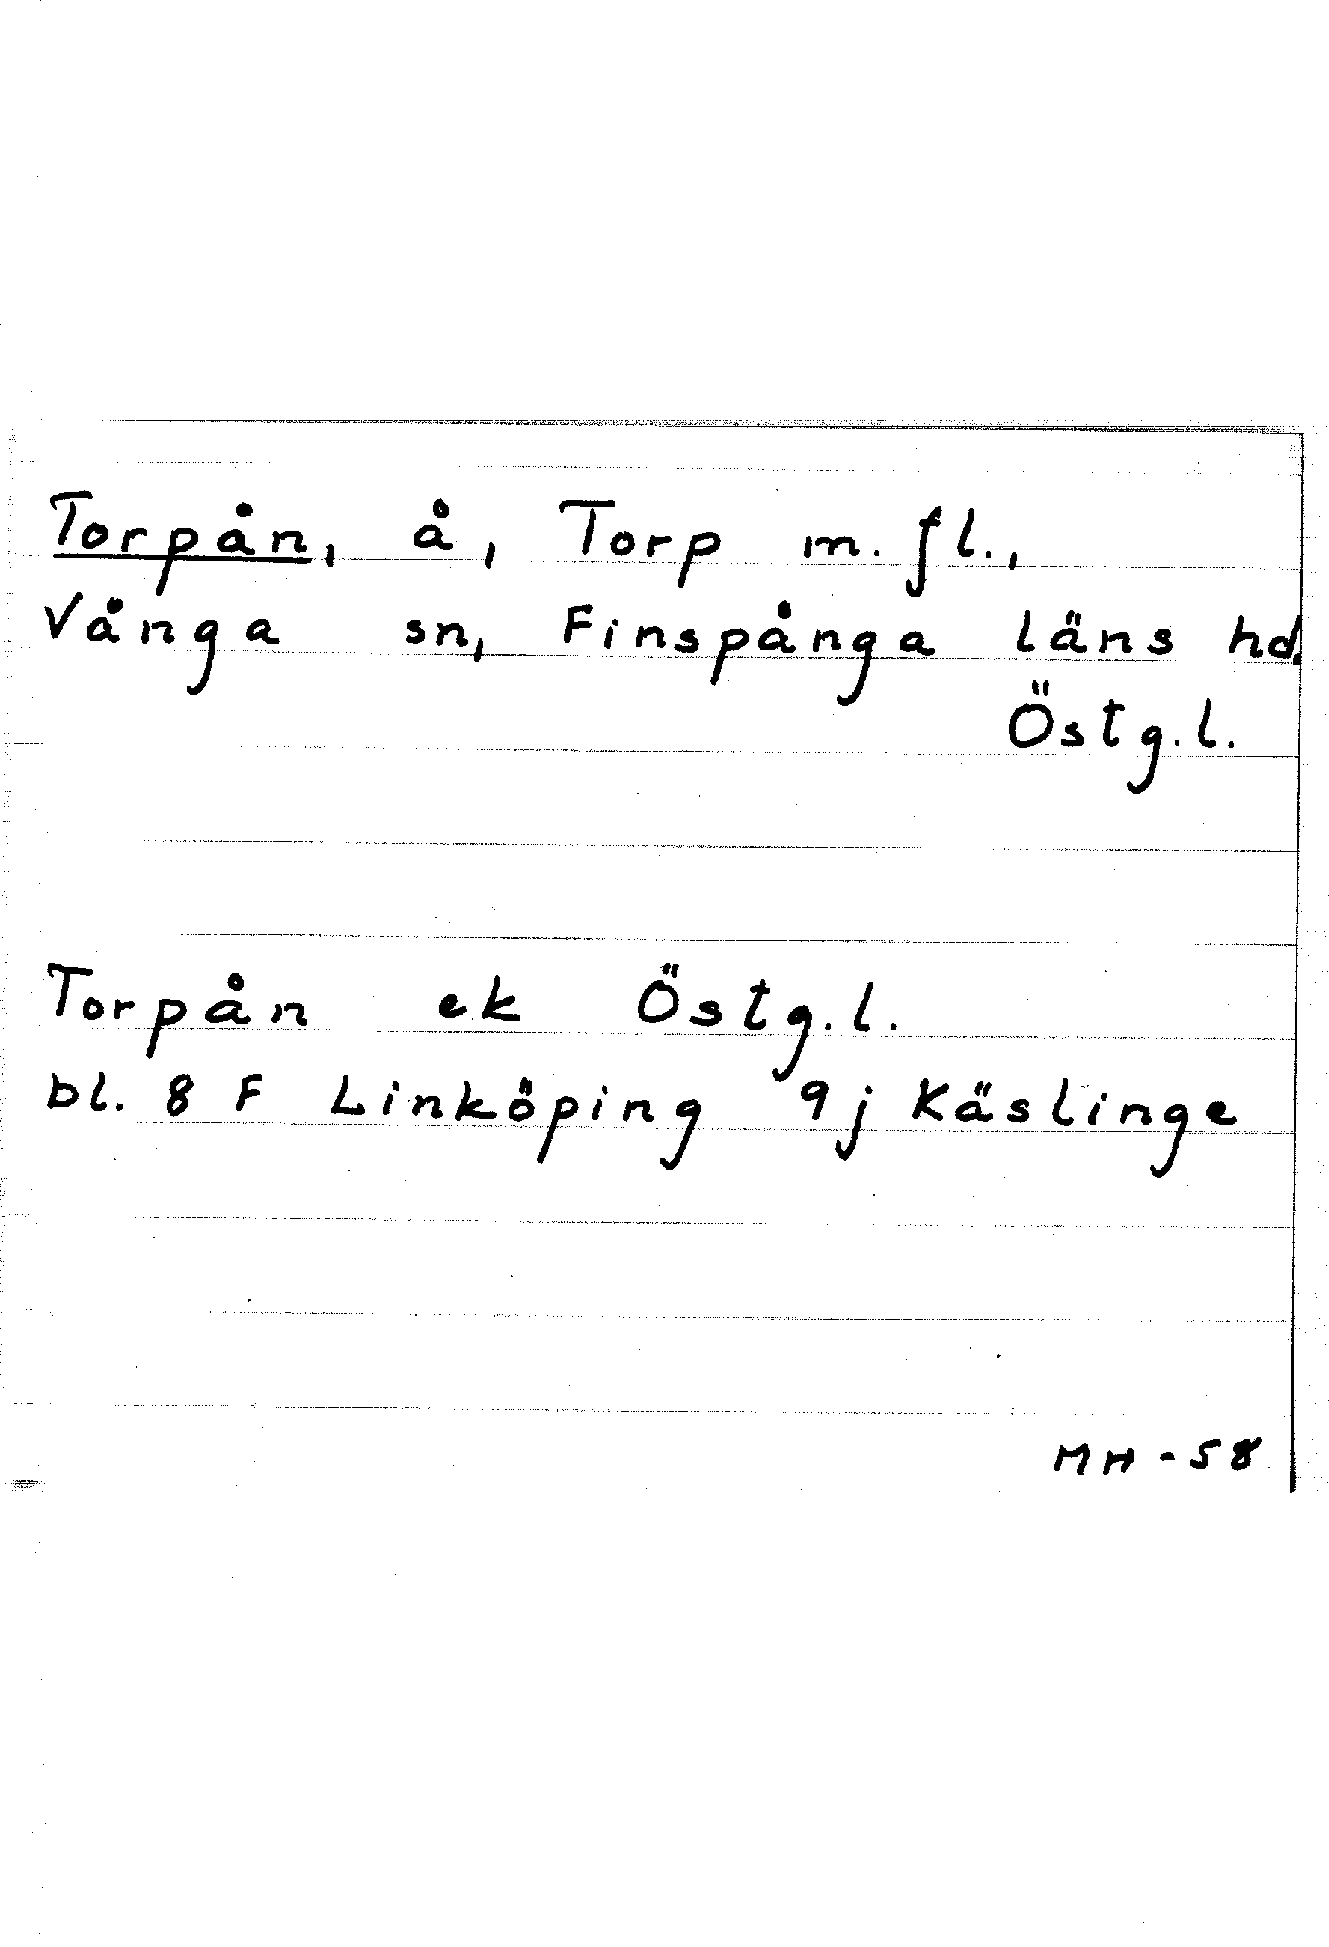 Torpån, å, Torp m.fl.,
Vånga sn, Finspånga läns hd.
Östg.l.
Torpån ek Östg.l.
bl. 8 F Linköping 9j Käslinge
MH-58